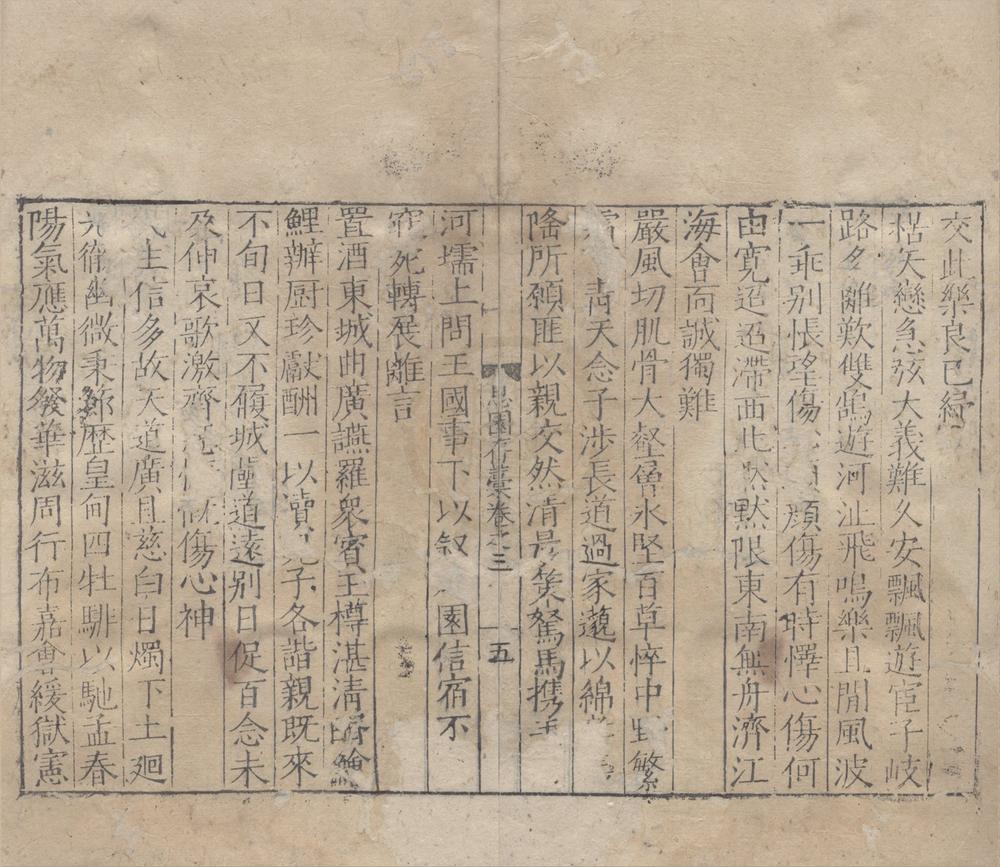 交此樂良已紓
栝矢戀急弦大義難久安飄飄遊宦子岐
路多離歎雙鵠遊河沚飛鳴樂且閒風波
一乖别悵望傷顏傷有時懌心傷何
由寛迢迢滯西北默默限東南無舟濟江
海會面誠獨難
嚴風切肌骨大壑魯氷堅百草悴中繁
青天念子渉長道過家邈以綿
隆所願匪以親交然清晨發駑馬携手
河壖上問王國事下以叙園信宿不
死轉展離言
思園存藁卷之三 五
置酒東城曲廣讌羅衆賓玉樽湛清
鯉辦厨珍獻酬一以瀆子各諧親既來
不旬日又不履城𨵦道遠别日促百念未
及伸哀歌激齊傷心神
生信多故天道廣且慈白日燭下土廻
光衛幽微秉節歴皇甸四牡騑以馳孟春
陽氣應萬物發華滋周行布嘉會緩獄憲